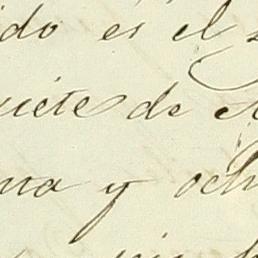 ido es el
siete de
na y och